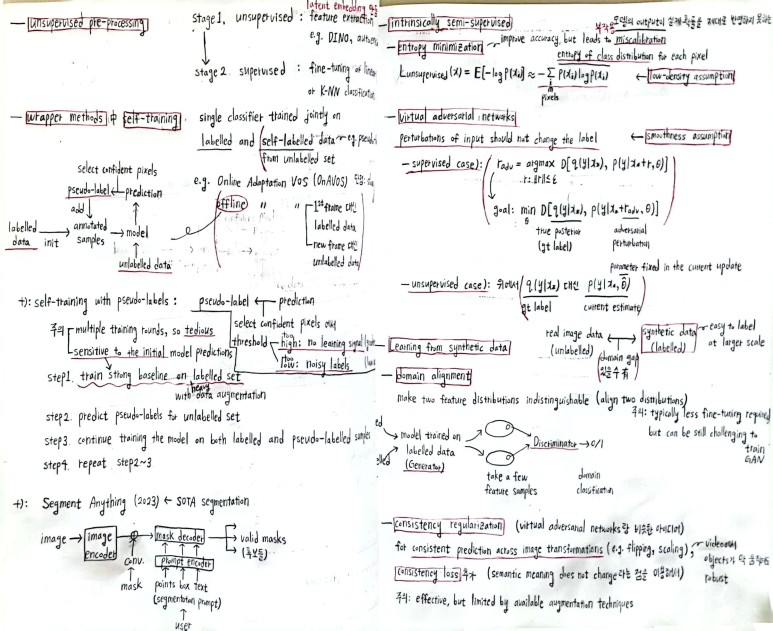 — unsupervised pre-processing
stage1, unsupervised : feature extraction
latent embedding
e.g. DINO,
stage2. supervised : fine-tuning of linear
or K-NN classification
— wrapper methods self-training
single classifier trained jointly on
labelled and self-labelled data
e.g.
from unlabelled set
select confident pixels
pseudo-label ← prediction
add
labelled data → init annotated samples → model
unlabelled data
e.g. Online Adaptation VOS (OnAVOS)
offline 〃 〃
1st frame 대신
labelled data
new frame 대신
unlabelled data
+): self-training with pseudo-labels :
pseudo-label ← prediction
select confident pixels
주의
multiple training rounds, so tedious
sensitive to the initial model predictions
threshold
too high: no learning signal
too low: noisy labels
step1. train strong baseline on labelled set
with heavy data augmentation
step2. predict pseudo-labels for unlabelled set
step3. continue training the model on both labelled and pseudo-labelled samples
step4. repeat step2~3
+): Segment Anything (2023) ← SOTA segmentation
image → image encoder → mask decoder → valid masks
conv.
prompt encoder
mask
points box text
(segmentation prompt)
user
— intrinsically semi-supervised
— entropy minimization
improve accuracy, but leads to miscalibration
entropy of class distribution for each pixel
Lunsupervised(x) = E[-log P(x)] ≈ -∑ P(xi) log P(xi)
pixels
← low-density assumption
— virtual adversarial networks
perturbations of input should not change the label
← smoothness assumption
— supervised case): radv = argmax D[q(y|x*), p(y|x*+r,θ)]
r:||r||≤ε
goal: min D[q(y|x*), p(y|x*+radv,θ)]
θ
true posterior
(gt label)
adversarial
perturbation
parameter fixed in the current update
— unsupervised case): q(y|x*) 대신 p(y|x*,θ̂)
gt label
current estimate
Learning from synthetic data
real image data
(unlabelled)
synthetic data
(labelled)
easy to label
at larger scale
domain gap
— domain alignment
make two feature distributions indistinguishable (align two distributions)
주의: typically less fine-tuning required
but can be still challenging to
train
GAN
model trained on
labelled data
(Generator)
Discriminator → 0/1
take a few
feature samples
domain
classification
— consistency regularization (virtual adversarial networks랑 비슷한 아이디어)
for consistent prediction across image transformations (e.g. flipping, scaling),
consistency loss 추가 (semantic meaning does not change 라는 점을 이용해서)
robust
주의: effective, but limited by available augmentation techniques